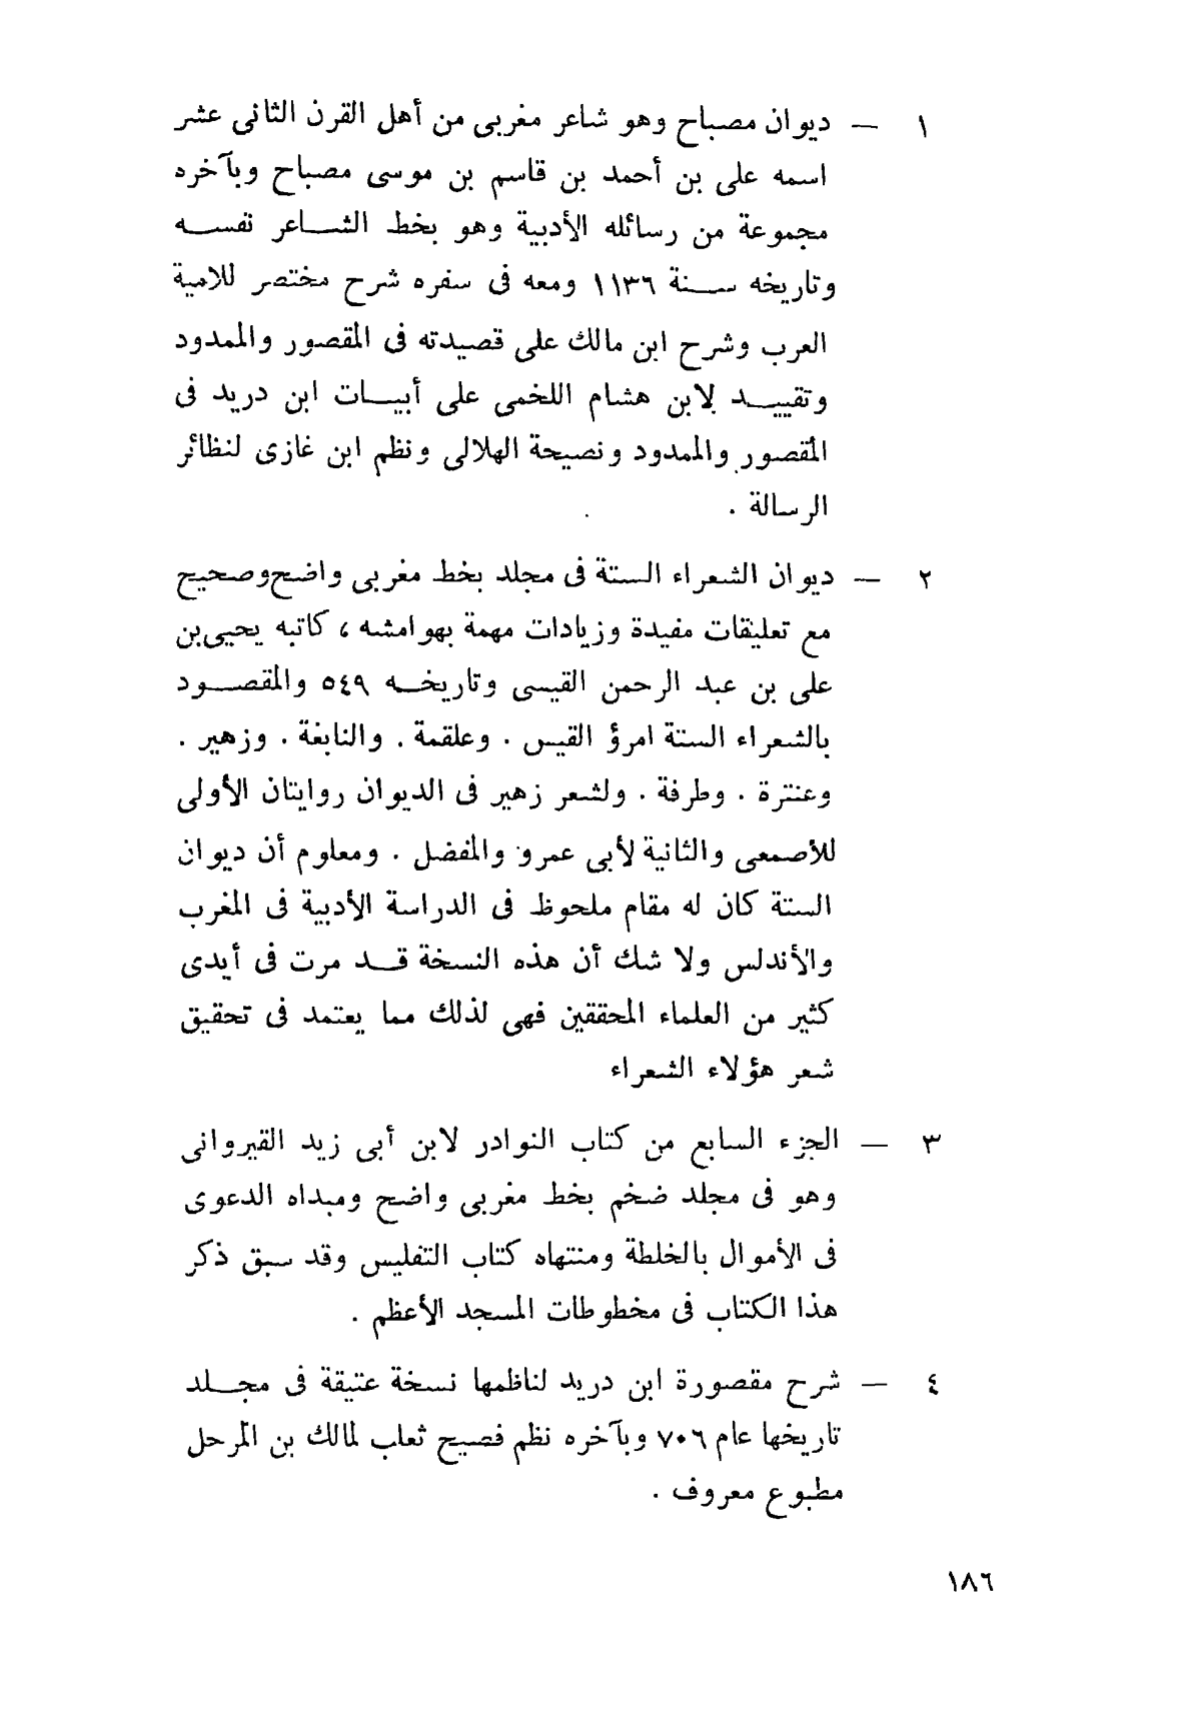 ١ — ديوان مصباح وهو شاعر مغربى من أهل القرن الثانى عشر
اسمه على بن أحمد بن قاسم بن موسى مصباح وبآخره
مجموعة من رسائله الأدبية وهو بخط الشاعر نفسه
وتاريخه سنة ١١٣٦ ومعه فى سفره شرح مختصر للامية
العرب وشرح ابن مالك على قصيدته فى المقصور والممدود
وتقييد لابن هشام اللخمى على أبيات ابن دريد فى
المقصور والممدود ونصيحة الهلالى ونظم ابن غازى لنظائر
الرسالة .
٢ — ديوان الشعراء الستة فى مجلد بخط مغربى واضح وصحيح
مع تعليقات مفيدة وزيادات مهمة بهوامشه ، كاتبه يحيى بن
على بن عبد الرحمن القيسى وتاريخه ٥٤٩ والمقصود
بالشعراء الستة امرؤ القيس . وعلقمة . والنابغة . وزهير .
وعنترة . وطرفة . ولشعر زهير فى الديوان روايتان الأولى
للأصمعى والثانية لأبى عمرو والمفضل . ومعلوم أن ديوان
الستة كان له مقام ملحوظ فى الدراسة الأدبية فى المغرب
والأندلس ولا شك أن هذه النسخة قد مرت فى أيدى
كثير من العلماء المحققين فهى لذلك مما يعتمد فى تحقيق
شعر هؤلاء الشعراء
٣ — الجزء السابع من كتاب النوادر لابن أبى زيد القيروانى
وهو فى مجلد ضخم بخط مغربى واضح ومبداه الدعوى
فى الأموال بالخلطة ومنتهاه كتاب التفليس وقد سبق ذكر
هذا الكتاب فى مخطوطات المسجد الأعظم .
٤ — شرح مقصورة ابن دريد لناظمها نسخة عتيقة فى مجلد
تاريخها عام ٧٠٦ وبآخره نظم فصيح ثعلب لمالك بن المرحل
مطبوع معروف .
١٨٦